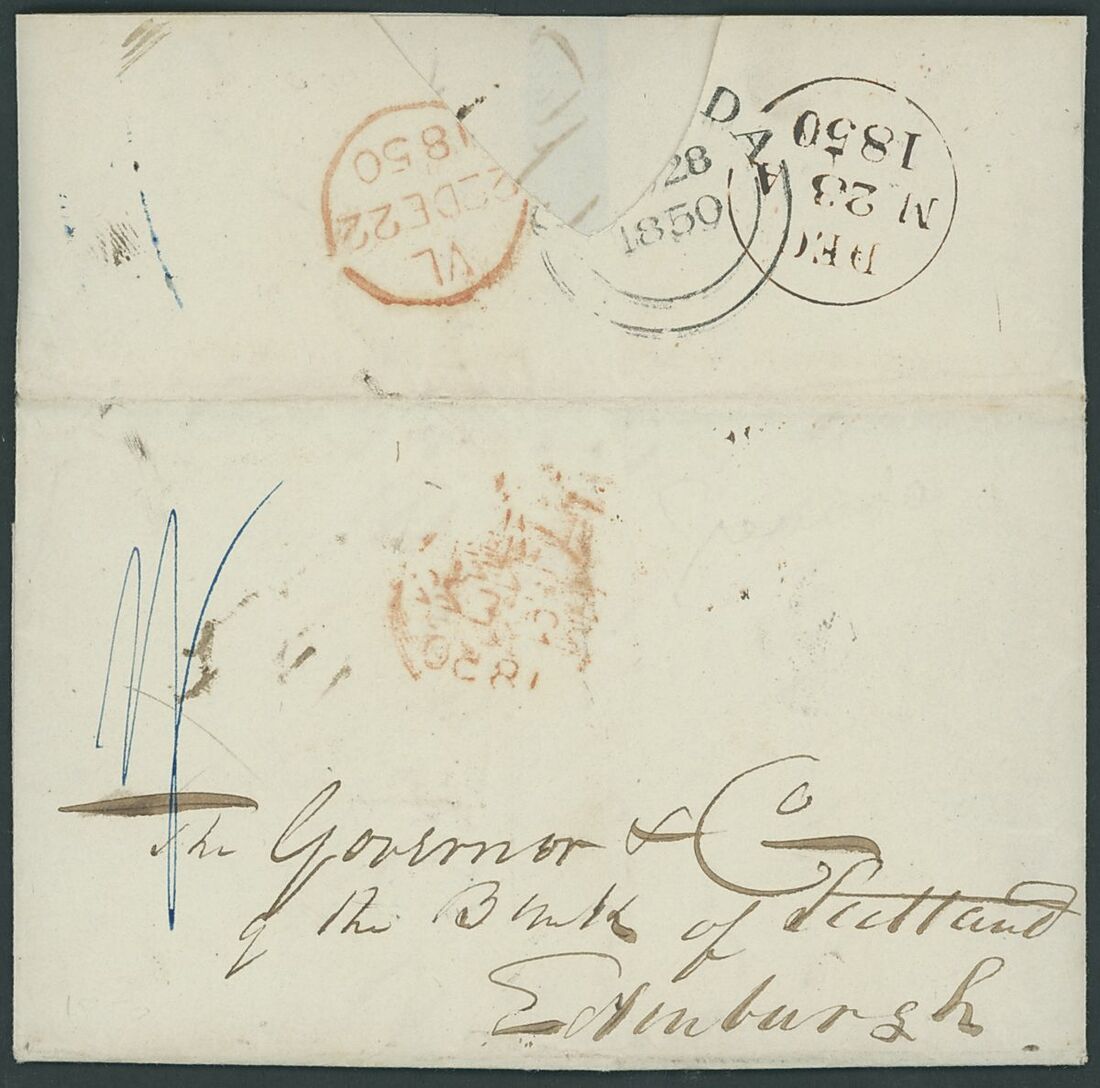 DA
28
1850
1850
22DE22
VL
DEC
M 23 A
1850
1850
The Governor & Co
of the Bank of Scotland
Edinburgh